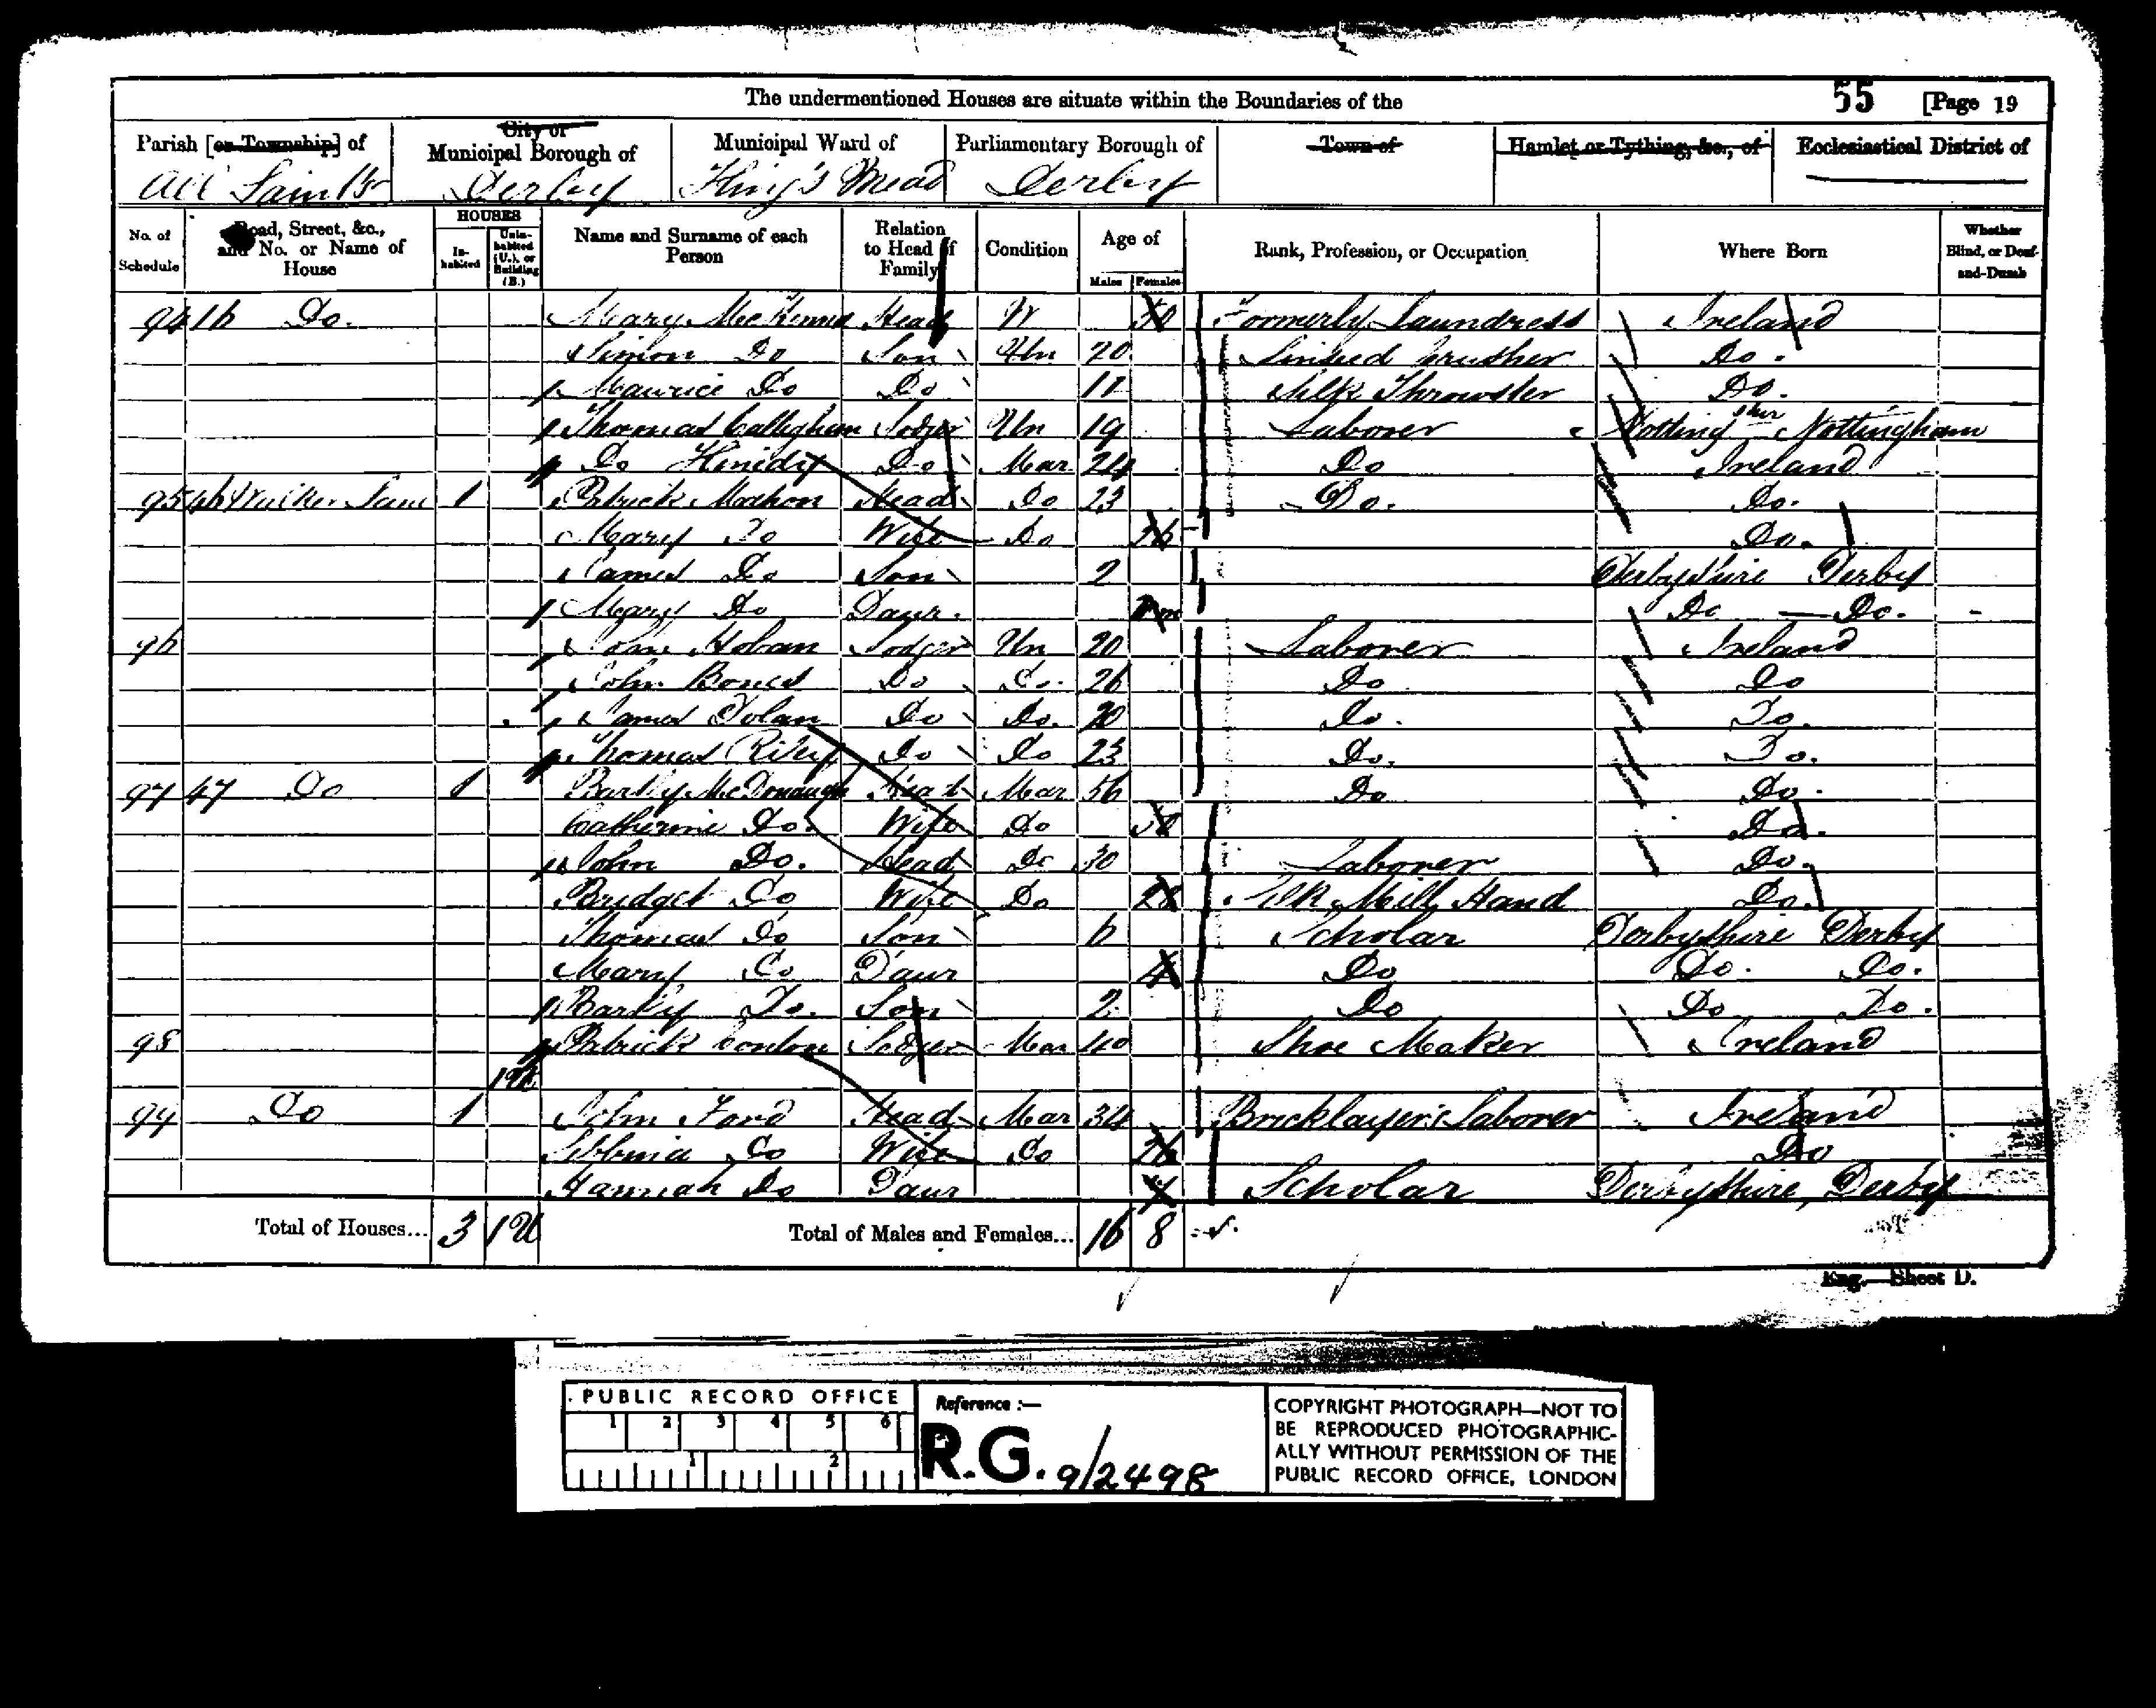 The undermentioned Houses are situate within the Boundaries of the 55 [Page 19
Parish [or Township] of City or Municipal Borough of Municipal Ward of Parliamentary Borough of Town of Hamlet or Tything, &c., of Ecclesiastical District of
All Saints Derby King's Mead Derby
No. of Schedule Road, Street, &c., and No. or Name of House HOUSES Inhabited Uninhabited (U.), or Building (B.) Name and Surname of each Person Relation to Head of Family Condition Age of Males Females Rank, Profession, or Occupation Where Born Whether Blind, or Deaf-and-Dumb
94 16 Do. Mary McKenna Head W 50 Formerly Laundress Ireland
Simon Do Son Un 20 Linseed Crusher Do.
Maurice Do Do 11 Silk Throwster Do.
Thomas Calleghan Lodger Un 19 Laborer Notting shr Nottingham
Do Kenidy Do Mar 24 Do Ireland
95 46 Walker Lane 1 Patrick Mathon Head Do 23 Do. Do.
Mary Do Wife Do 26 Do.
James Do Son 2 Derbyshire Derby
Mary Do Daur. Do Do.
96 Hoban Lodger Un 20 Laborer Ireland
John Bones Do Do. 26 Do Do
James Dolan Do Do. 20 Do. Do.
Thomas Riley Do Do 23 Do. Do.
97 47 Do 1 Bartly McDonaugh Head Mar 56 Do Do.
Catherine Do. Wife Do Do.
John Do. Head Do 30 Laborer Do.
Bridget Do Wife Do 28 Silk Mill Hand Do.
Thomas Do Son 6 Scholar Derbyshire Derby
Mary Do Daur 4 Do Do. Do.
Bartly Do. Son 2 Do Do Do.
98 Patrick Conlon Lodger Mar 40 Shoe Maker Ireland
1U
99 Do 1 John Ford Head Mar 34 Bricklayer's Laborer Ireland
Do Wife Do 26 Do
Hannah Do Daur Scholar Derbyshire, Derby
Total of Houses... 3 1U Total of Males and Females... 16 8
Eng.—Sheet D.
PUBLIC RECORD OFFICE
1 2 3 4 5 6
1 2
Reference :—
R.G. 9/2498
COPYRIGHT PHOTOGRAPH—NOT TO
BE REPRODUCED PHOTOGRAPHIC-
ALLY WITHOUT PERMISSION OF THE
PUBLIC RECORD OFFICE, LONDON